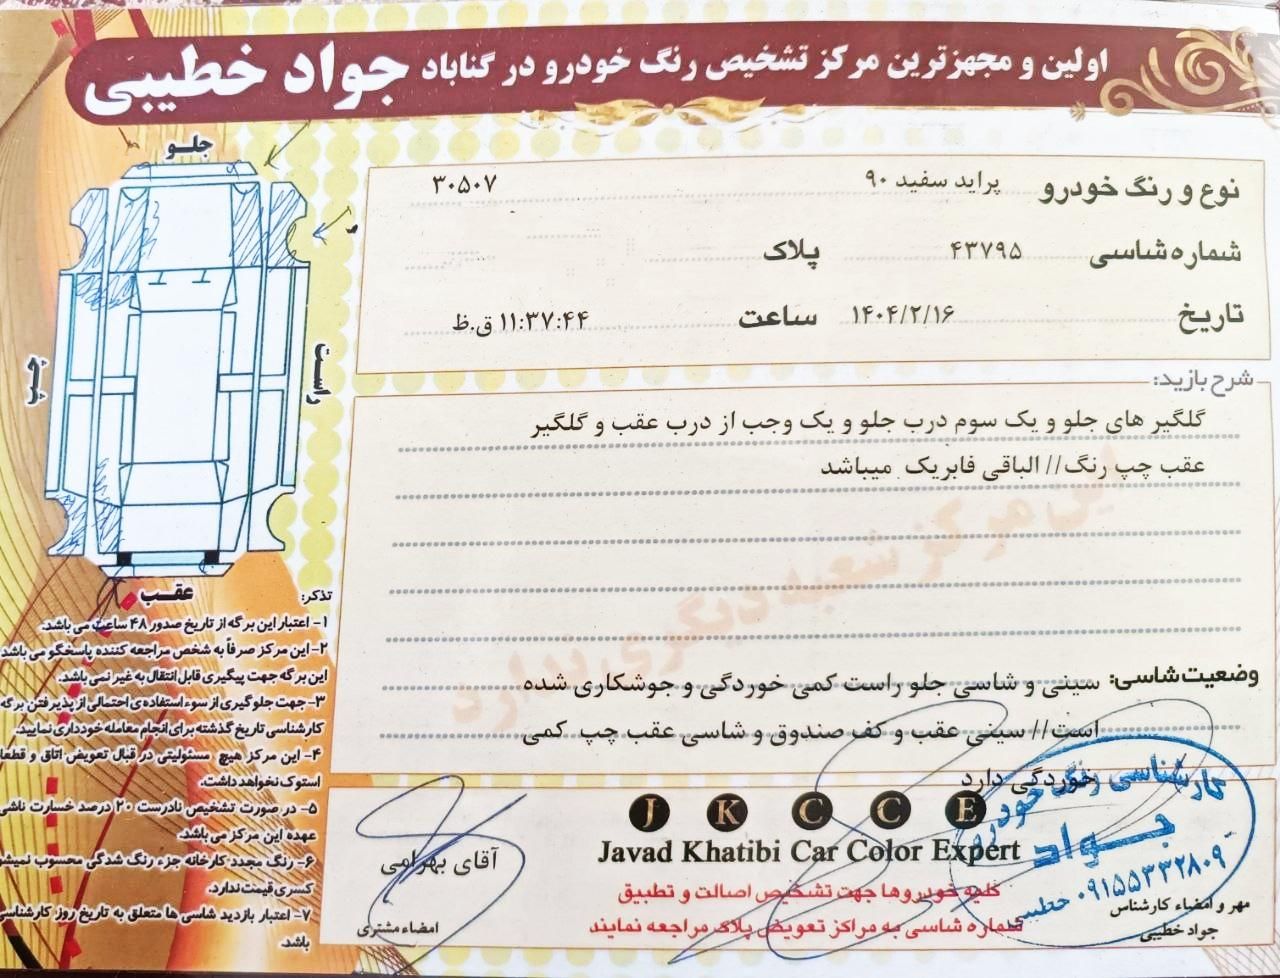 اولین و مجهزترین مرکز تشخیص رنگ خودرو در گناباد جواد خطیبی
جلو
راست
چپ
عقب
نوع و رنگ خودرو پراید سفید ۹۰ ۳۰۵۰۷
شماره شاسی ۴۳۷۹۵ پلاک
تاریخ ۱۴۰۴/۲/۱۶ ساعت ۱۱:۳۷:۴۴ ق.ظ
شرح بازید:
گلگیر های جلو و یک سوم درب جلو و یک وجب از درب عقب و گلگیر
عقب چپ رنگ// الباقی فابریک میباشد
این مرکز شعبه دیگری ندارد
وضعیت شاسی: سینی و شاسی جلو راست کمی خوردگی و جوشکاری شده
است// سینی عقب و کف صندوق و شاسی عقب چپ کمی
خوردگی دارد
تذکر:
۱- اعتبار این برگه از تاریخ صدور ۴۸ ساعت می باشد.
۲- این مرکز صرفاً به شخص مراجعه کننده پاسخگو می باشد
این برگه جهت پیگیری قابل انتقال به غیر نمی باشد.
۳- جهت جلوگیری از سوء استفاده ی احتمالی از پذیرفتن برگه
کارشناسی تاریخ گذشته برای انجام معامله خودداری نمایید.
۴- این مرکز هیچ مسئولیتی در قبال تعویض اتاق و قطعا
استوک نخواهد داشت.
۵- در صورت تشخیص نادرست ۲۰ درصد خسارت ناشی
عهده این مرکز می باشد.
۶- رنگ مجدد کارخانه جزء رنگ شدگی محسوب نمیش
کسری قیمت ندارد.
۷- اعتبار بازدید شاسی ها متعلق به تاریخ روز کارشناسی
باشد.
J K C C E
Javad Khatibi Car Color Expert
کلیه خودروها جهت تشخیص اصالت و تطبیق
شماره شاسی به مراکز تعویض پلاک مراجعه نمایند
آقای بهرامی
امضاء مشتری
مهر و امضاء کارشناس
جواد خطیبی
کارشناسی رنگ خودرو
جواد
خطیبی ۰۹۱۵۵۳۳۲۸۰۹